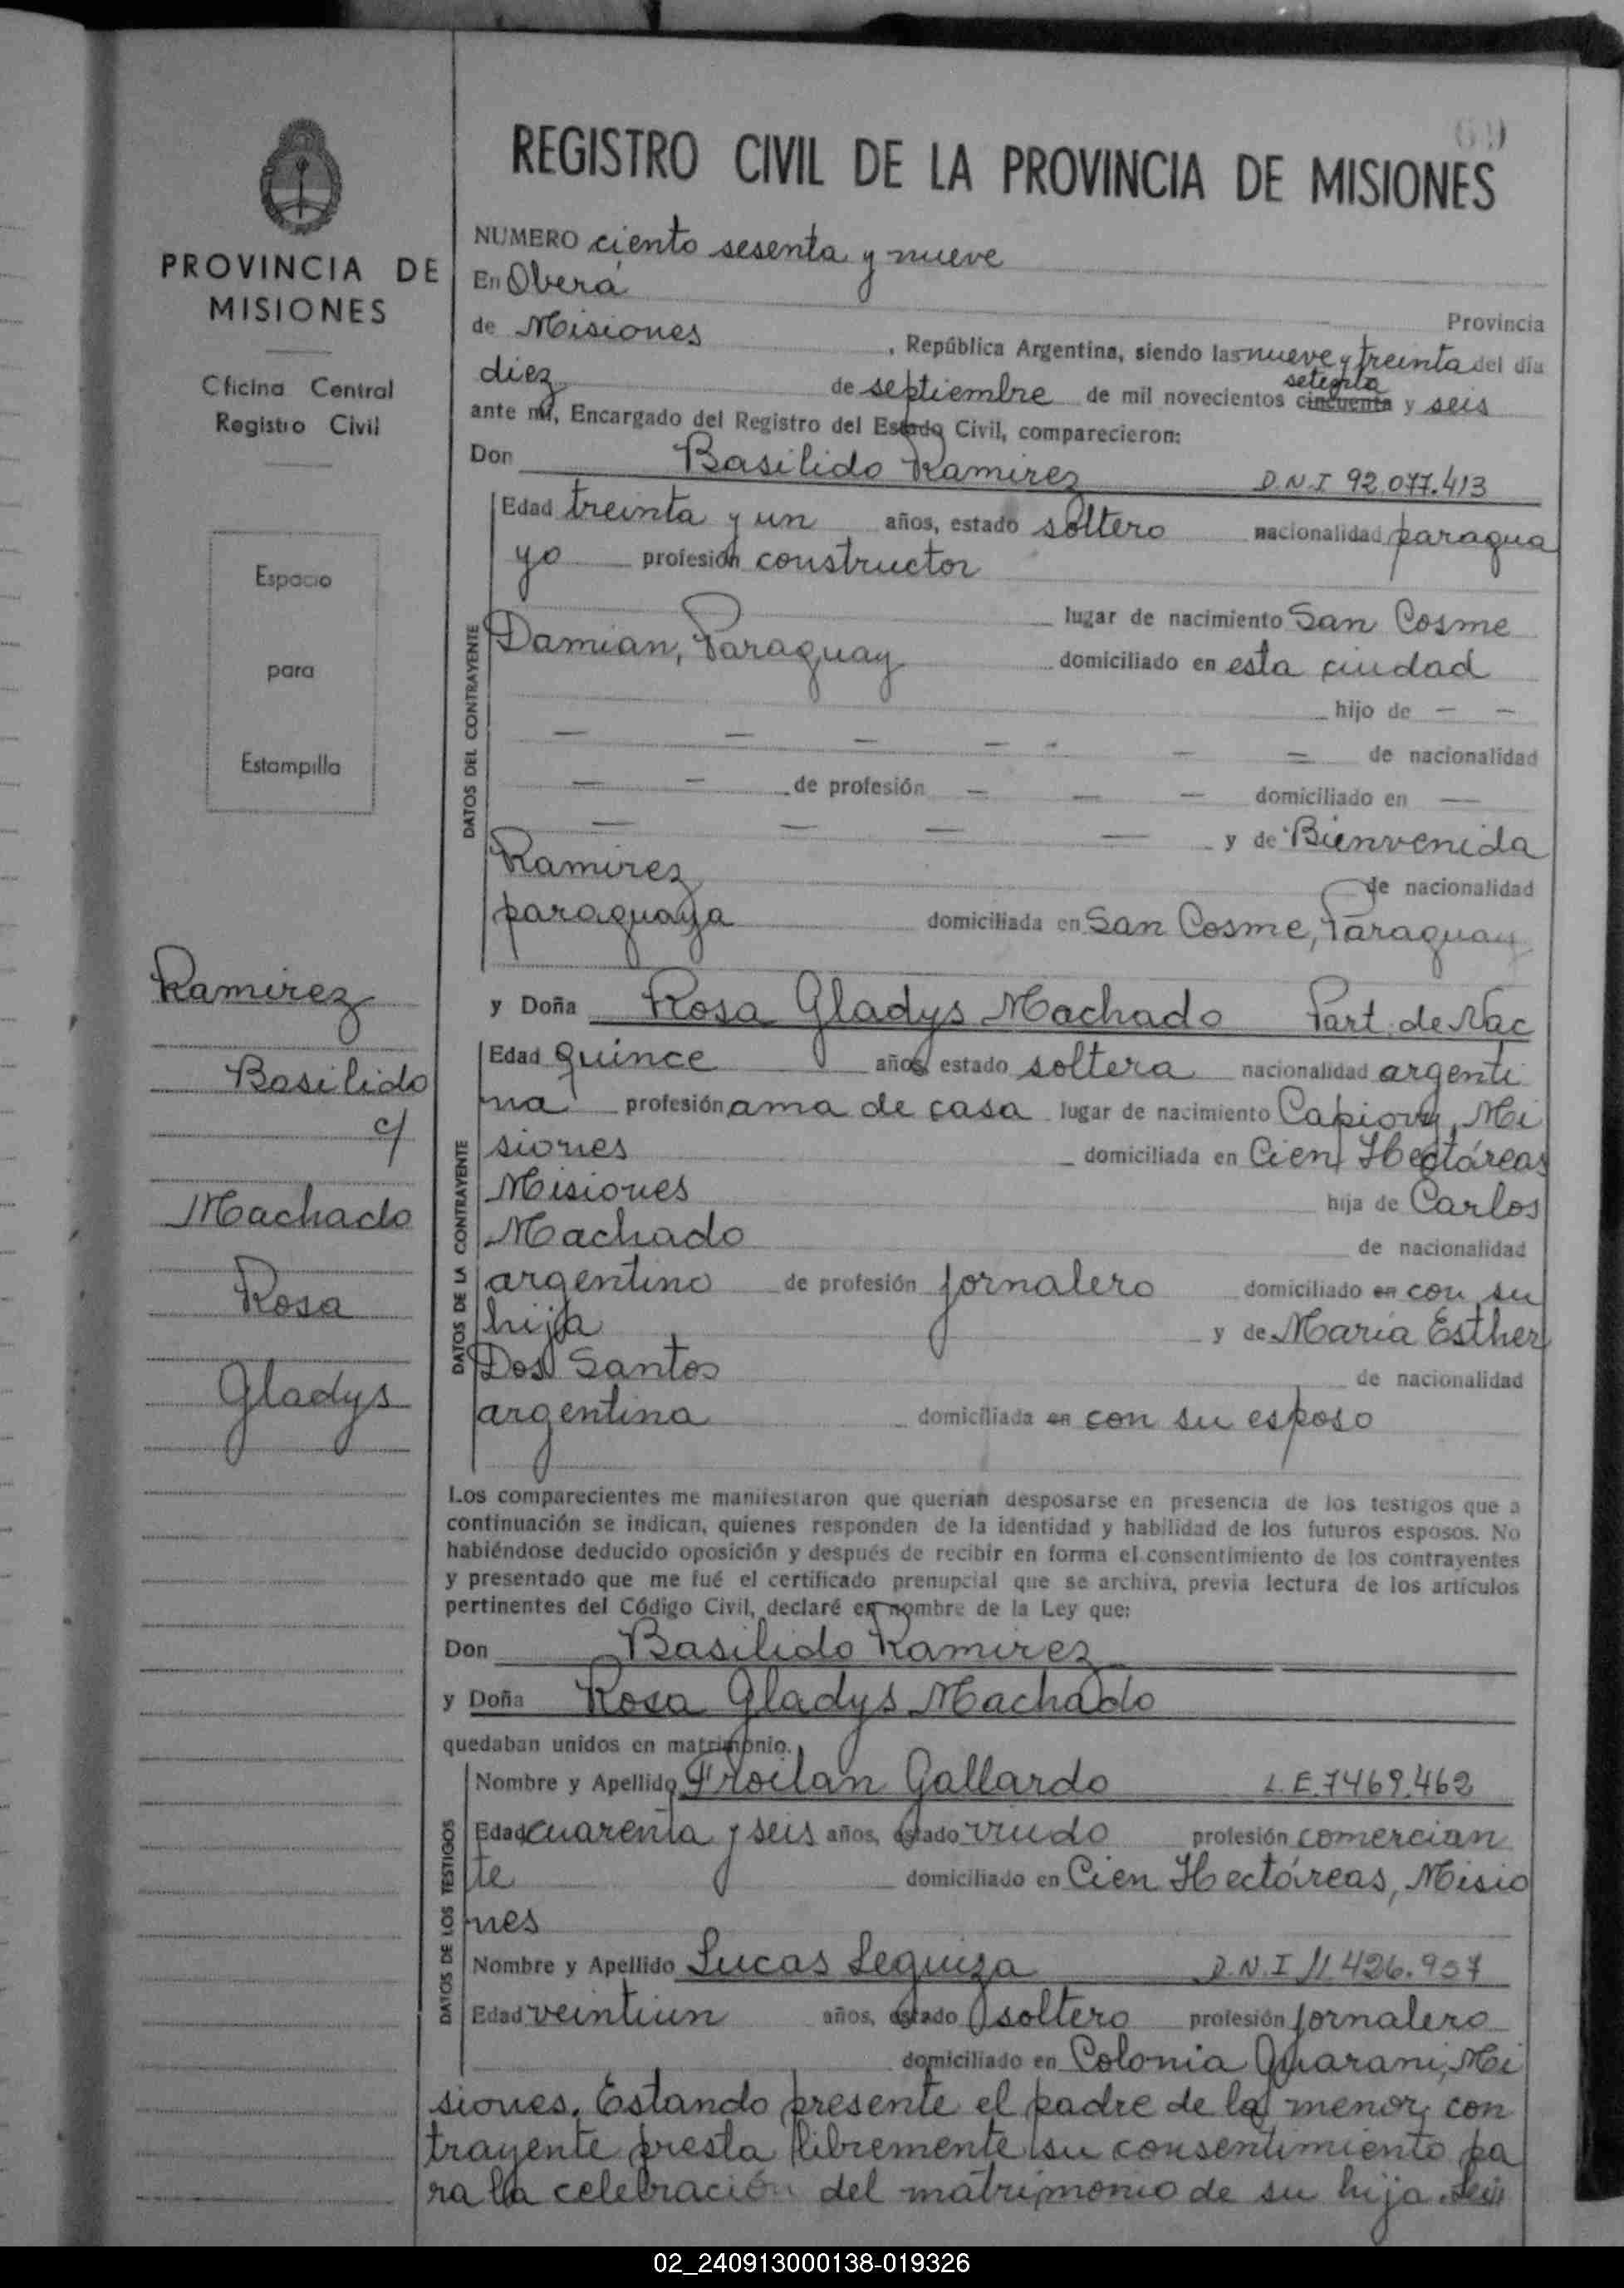 69
REGISTRO CIVIL DE LA PROVINCIA DE MISIONES
PROVINCIA DE
MISIONES
Oficina Central
Registro Civil
Espacio
para
Estampilla
Ramirez
Basilido
c/
Machado
Rosa
Gladys
NUMERO ciento sesenta y nueve
En Oberá
Provincia
de Misiones , República Argentina, siendo las nueve y treinta del día
setenta
diez de septiembre de mil novecientos cincuenta y seis
ante mí, Encargado del Registro del Estado Civil, comparecieron:
Don Basilido Ramirez D.N.I 92.077.413
DATOS DEL CONTRAYENTE
Edad treinta y un años, estado soltero nacionalidad paragua
yo profesión constructor
lugar de nacimiento San Cosme
Damian, Paraguay domiciliado en esta ciudad
hijo de — —
— — — — - — — de nacionalidad
— — de profesión — — — domiciliado en —
— — — — y de Bienvenida
Ramirez de nacionalidad
paraguaya domiciliada en San Cosme, Paraguay
y Doña Rosa Gladys Machado Part. de Nac
DATOS DE LA CONTRAYENTE
Edad quince años, estado soltera nacionalidad argenti
na profesión ama de casa lugar de nacimiento Capiovy, Mi
siones domiciliada en Cien Hectáreas
Misiones hija de Carlos
Machado de nacionalidad
argentino de profesión jornalero domiciliado en con su
hija y de María Esther
Dos Santos de nacionalidad
argentina domiciliada en con su esposo
Los comparecientes me manifestaron que querían desposarse en presencia de los testigos que a
continuación se indican, quienes responden de la identidad y habilidad de los futuros esposos. No
habiéndose deducido oposición y después de recibir en forma el consentimiento de los contrayentes
y presentado que me fué el certificado prenupcial que se archiva, previa lectura de los artículos
pertinentes del Código Civil, declaré en nombre de la Ley que:
Don Basilido Ramirez
y Doña Rosa Gladys Machado
quedaban unidos en matrimonio.
DATOS DE LOS TESTIGOS
Nombre y Apellido Froilan Gallardo L.E.7469.462
Edad cuarenta y seis años, estado viudo profesión comercian
te domiciliado en Cien Hectáreas, Misio
nes
Nombre y Apellido Lucas Leguiza D.N.I 11.426.957
Edad veintiun años, estado soltero profesión jornalero
domiciliado en Colonia Guarani, Mi
siones. Estando presente el padre de la menor con
trayente presta libremente su consentimiento pa
ra la celebración del matrimonio de su hija.
02_240913000138-019326